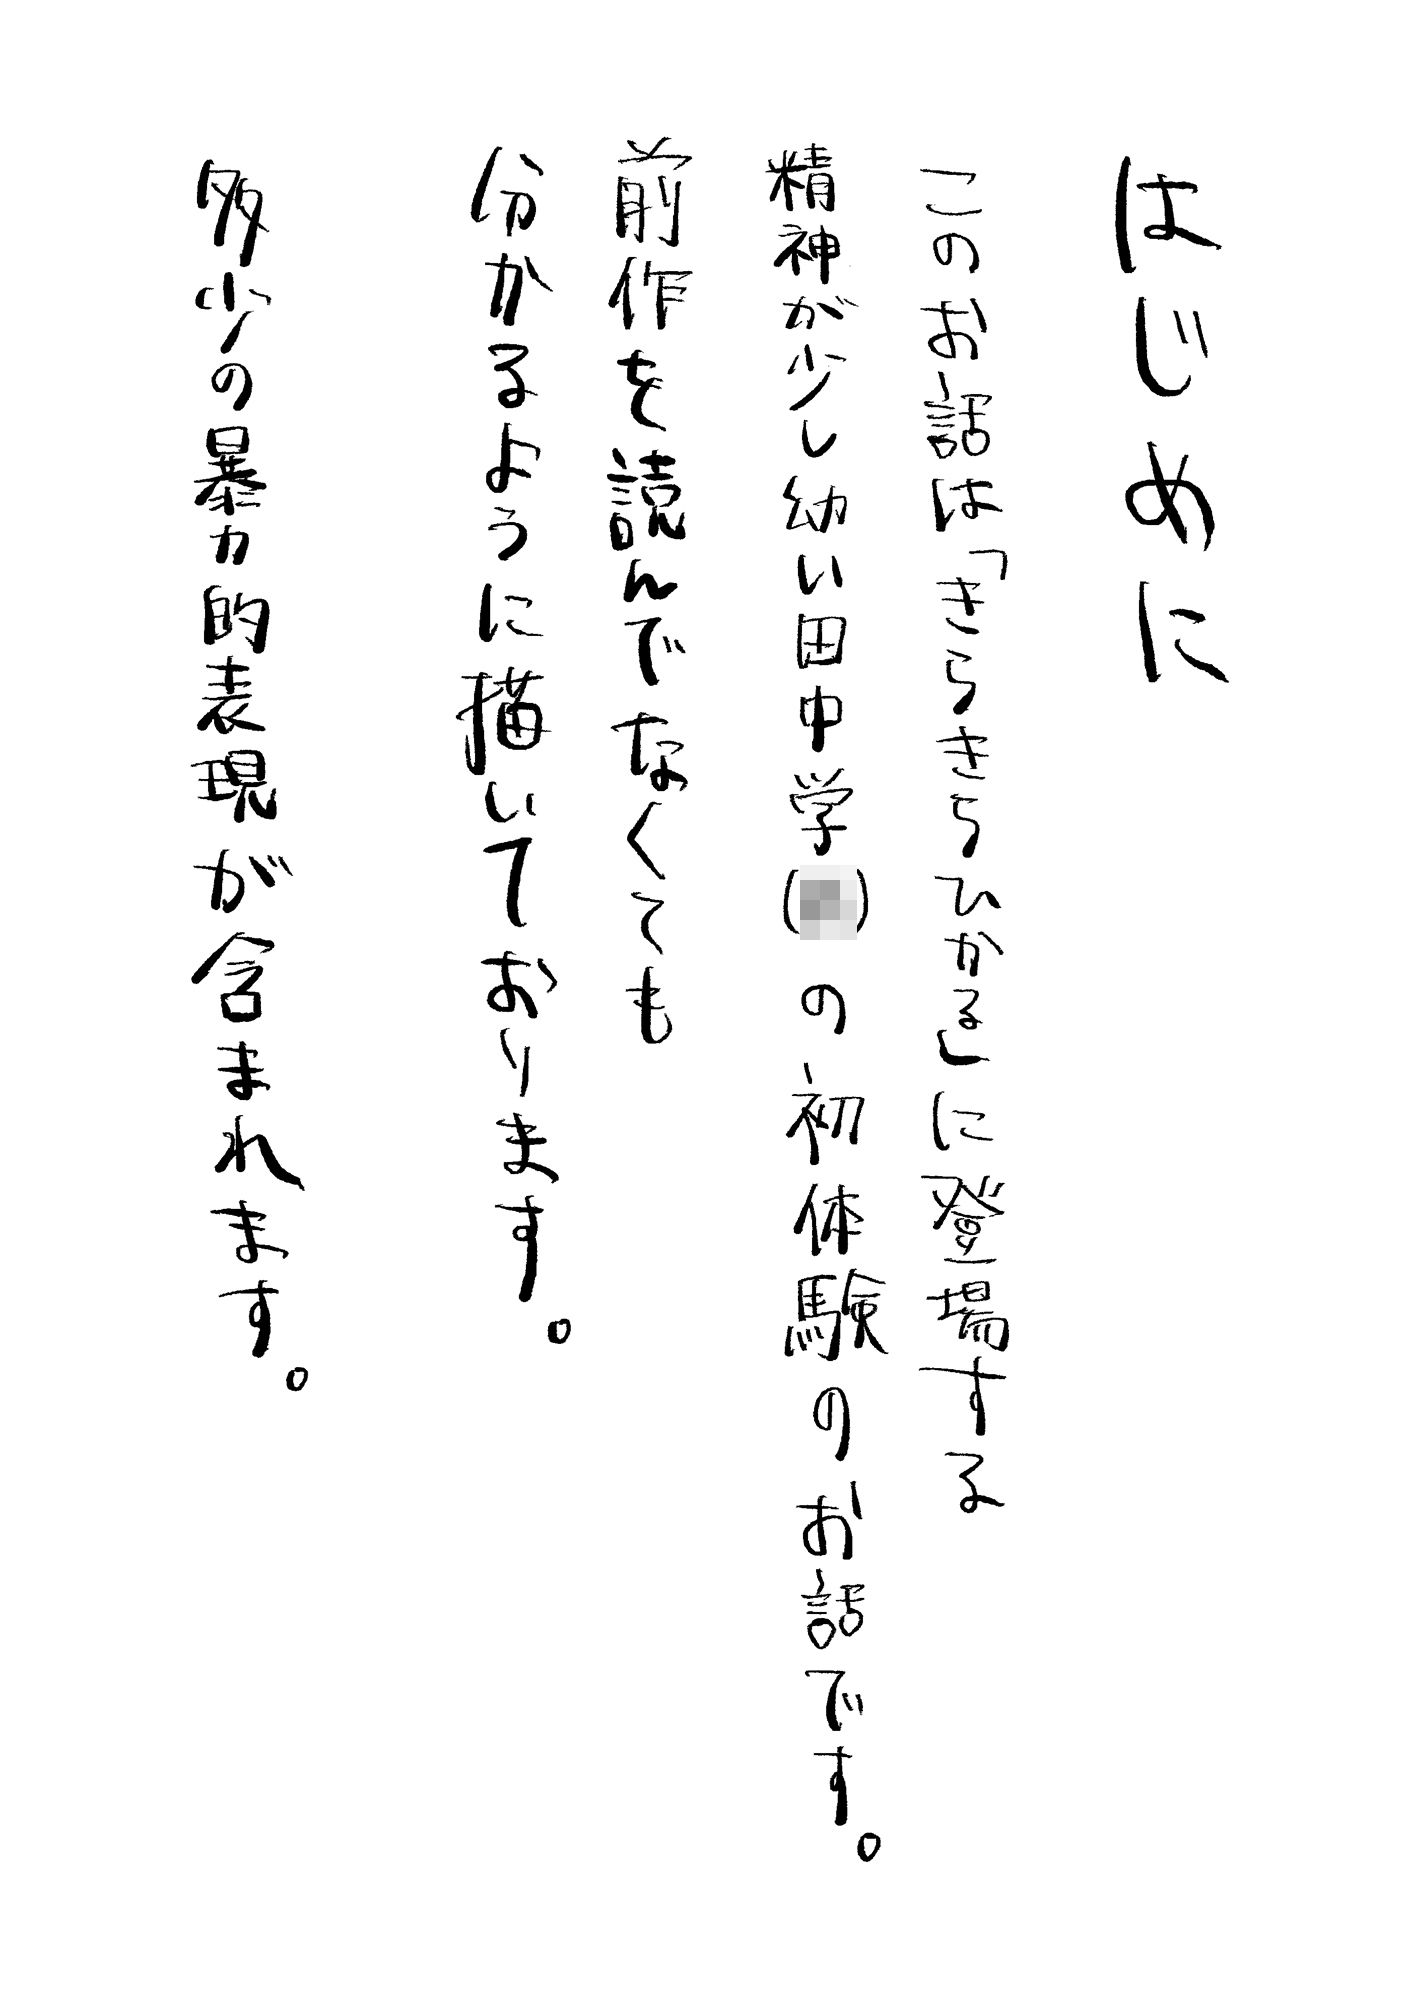 はじめに
このお話は「きらきらひかる」に登場する
精神が少し幼い田中学( )の初体験のお話です。
前作を読んでなくても
分かるように描いております。
多少の暴力的表現が含まれます。